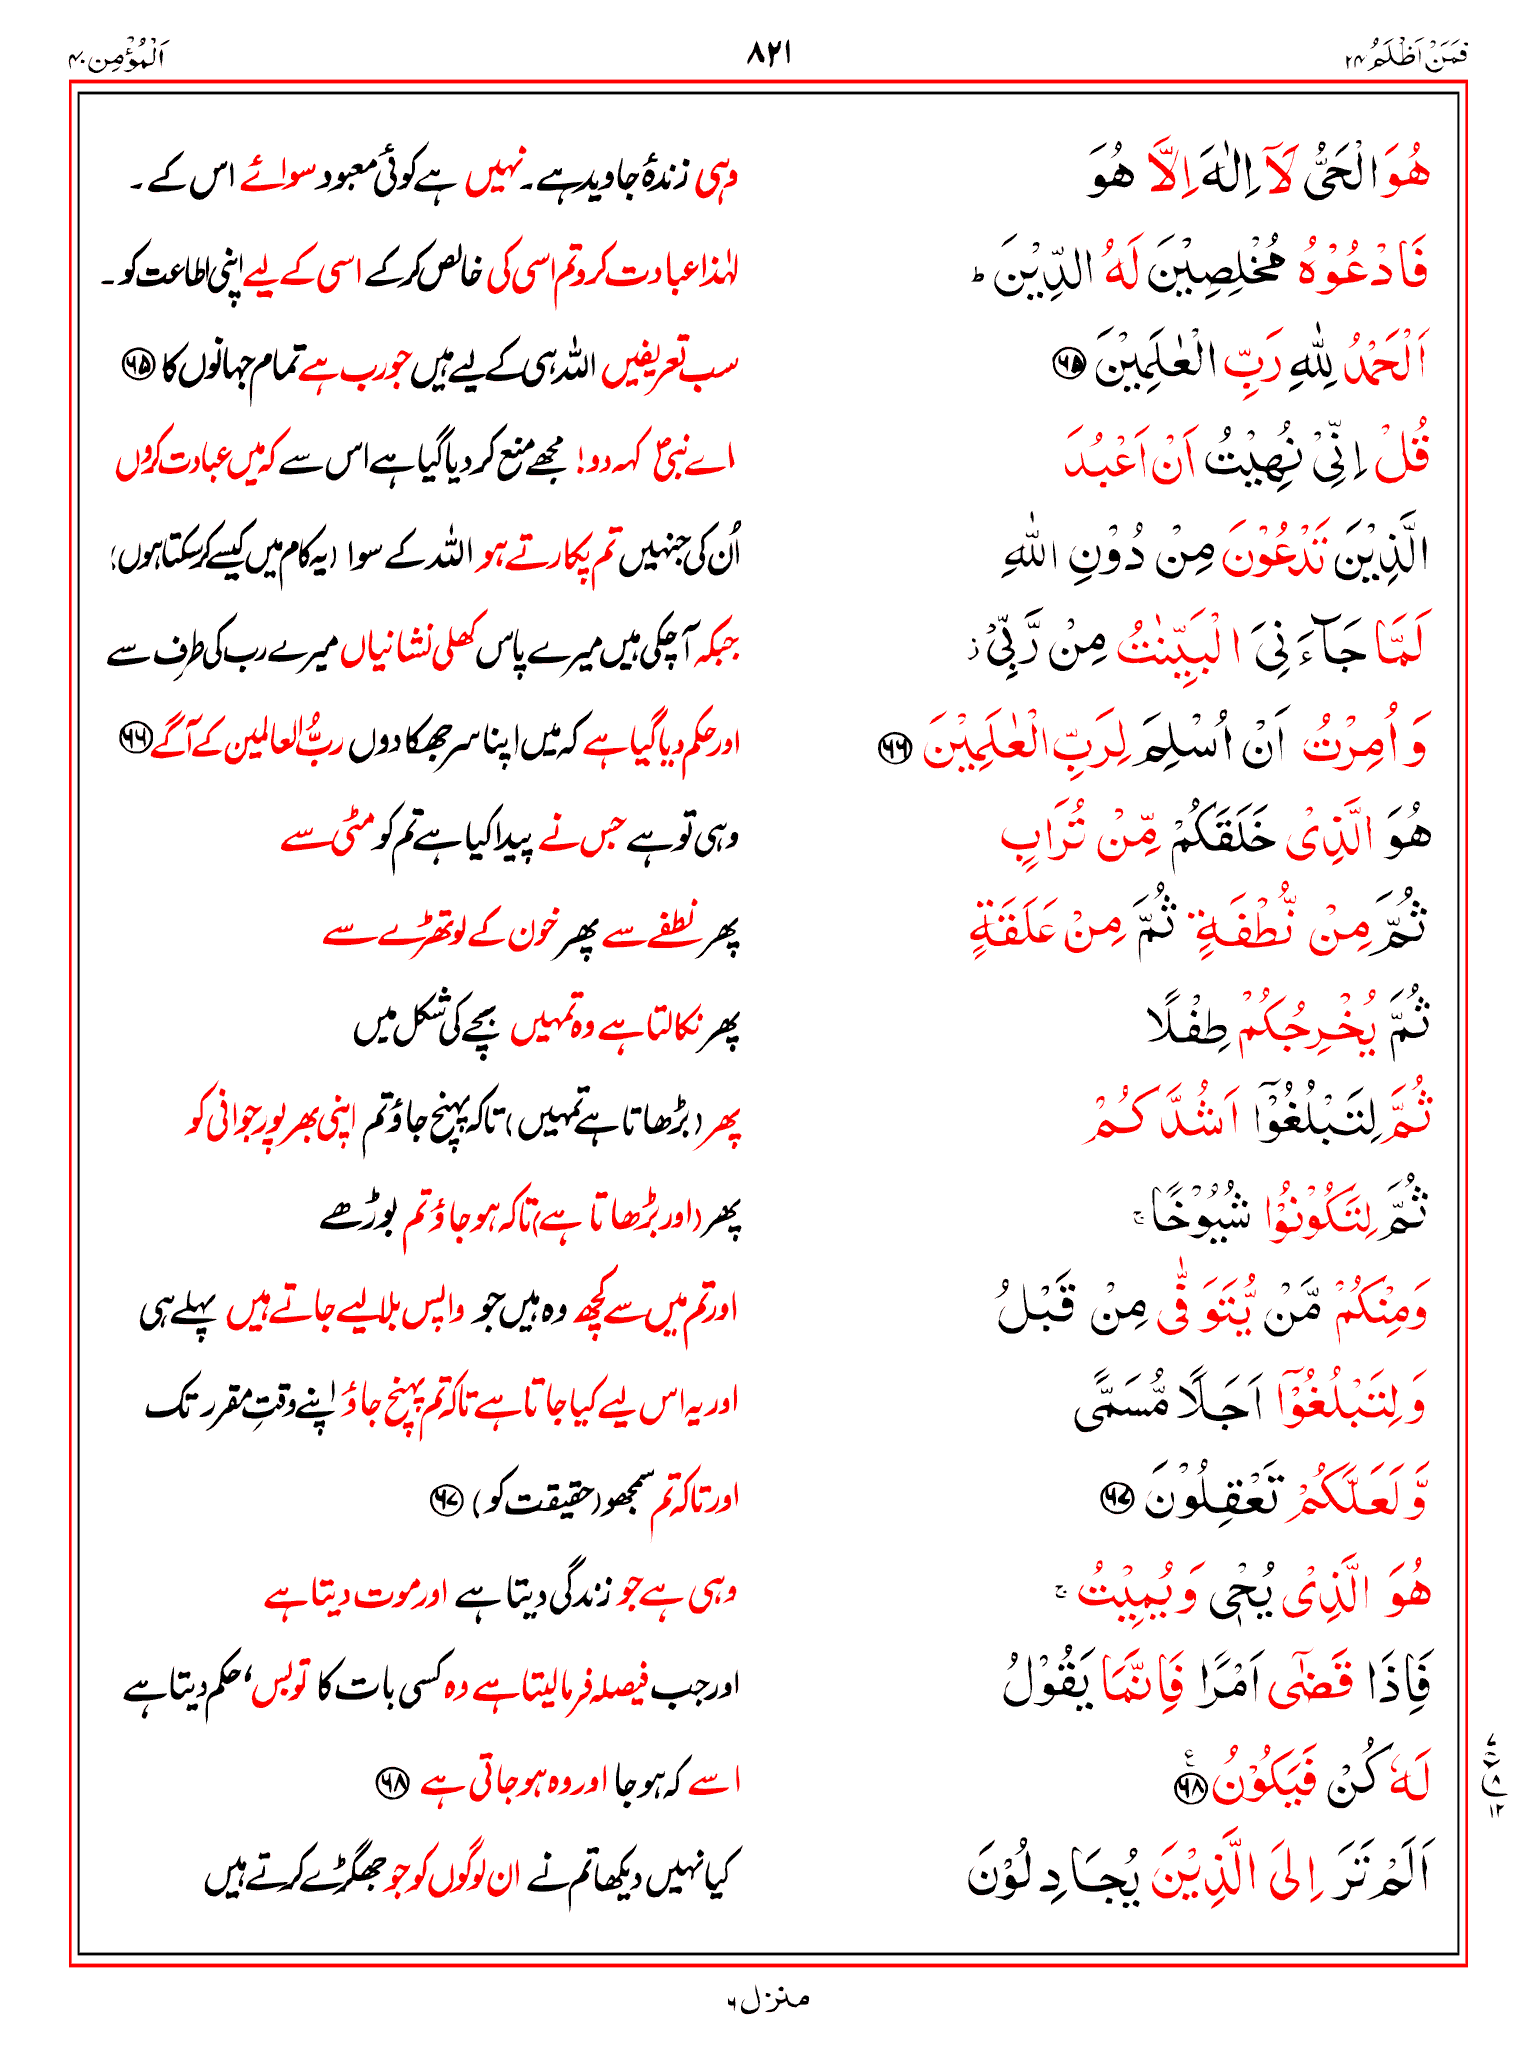 فَمَنْ اَظْلَمُ ۲۴ ۸۲۱ اَلْمُؤْمِن ۴۰
هُوَ الْحَيُّ لَآ اِلٰهَ اِلَّا هُوَ وہی زندۂ جاوید ہے۔ نہیں ہے کوئی معبود سوائے اس کے۔
فَادْعُوْهُ مُخْلِصِيْنَ لَهُ الدِّيْنَ ؕ لہٰذا عبادت کرو تم اسی کی خالص کر کے اسی کے لیے اپنی اطاعت کو۔
اَلْحَمْدُ لِلّٰهِ رَبِّ الْعٰلَمِيْنَ ۶۵ سب تعریفیں اللہ ہی کے لیے ہیں جو رب ہے تمام جہانوں کا ۶۵
قُلْ اِنِّيْ نُهِيْتُ اَنْ اَعْبُدَ اے نبیؐ کہہ دو! مجھے منع کر دیا گیا ہے اس سے کہ میں عبادت کروں
الَّذِيْنَ تَدْعُوْنَ مِنْ دُوْنِ اللّٰهِ اُن کی جنہیں تم پکارتے ہو اللہ کے سوا (یہ کام میں کیسے کر سکتا ہوں)
لَمَّا جَآءَنِيَ الْبَيِّنٰتُ مِنْ رَّبِّيْ ز جبکہ آ چکی ہیں میرے پاس کھلی نشانیاں میرے رب کی طرف سے
وَاُمِرْتُ اَنْ اُسْلِمَ لِرَبِّ الْعٰلَمِيْنَ ۶۶ اور حکم دیا گیا ہے کہ میں اپنا سر جھکا دوں ربُّ العالمین کے آگے ۶۶
هُوَ الَّذِيْ خَلَقَكُمْ مِّنْ تُرَابٍ وہی تو ہے جس نے پیدا کیا ہے تم کو مٹی سے
ثُمَّ مِنْ نُّطْفَةٍ ثُمَّ مِنْ عَلَقَةٍ پھر نطفے سے پھر خون کے لوتھڑے سے
ثُمَّ يُخْرِجُكُمْ طِفْلًا پھر نکالتا ہے وہ تمہیں بچے کی شکل میں
ثُمَّ لِتَبْلُغُوْٓا اَشُدَّكُمْ پھر (بڑھاتا ہے تمہیں) تاکہ پہنچ جاؤ تم اپنی بھرپور جوانی کو
ثُمَّ لِتَكُوْنُوْا شُيُوْخًا ۚ پھر (اور بڑھاتا ہے) تاکہ ہو جاؤ تم بوڑھے
وَمِنْكُمْ مَّنْ يُّتَوَفّٰى مِنْ قَبْلُ اور تم میں سے کچھ وہ ہیں جو واپس بلا لیے جاتے ہیں پہلے ہی
وَلِتَبْلُغُوْٓا اَجَلًا مُّسَمًّى اور یہ اس لیے کیا جاتا ہے تاکہ تم پہنچ جاؤ اپنے وقتِ مقرر تک
وَّلَعَلَّكُمْ تَعْقِلُوْنَ ۶۷ اور تاکہ تم سمجھو (حقیقت کو) ۶۷
هُوَ الَّذِيْ يُحْيٖ وَيُمِيْتُ ۚ وہی ہے جو زندگی دیتا ہے اور موت دیتا ہے
فَاِذَا قَضٰٓى اَمْرًا فَاِنَّمَا يَقُوْلُ اور جب فیصلہ فرما لیتا ہے وہ کسی بات کا تو بس، حکم دیتا ہے
لَهٗ كُنْ فَيَكُوْنُ ۶۸ ع اسے کہ ہو جا اور وہ ہو جاتی ہے ۶۸
۷ ع ۸ ۱۲
اَلَمْ تَرَ اِلَى الَّذِيْنَ يُجَادِلُوْنَ کیا نہیں دیکھا تم نے ان لوگوں کو جو جھگڑے کرتے ہیں
منزل ۶